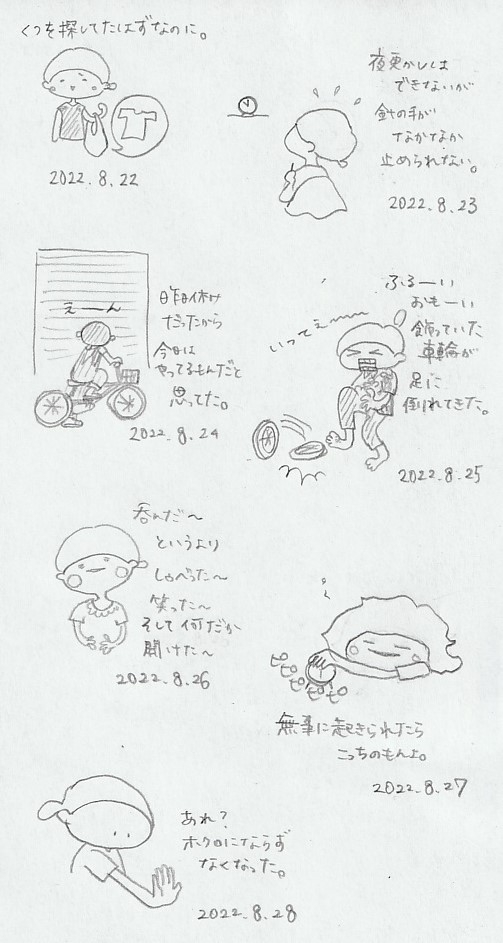 くつを探してたはずなのに。
2022.8.22
夜更かしは
できないが
針の手が
なかなか
止められない。
2022.8.23
えーん
昨日休み
だったから
今日は
やってるもんだと
思ってた。
2022.8.24
いってえ〜〜
ふるーい
おもーい
飾っていた
車輪が
足に
倒れてきた。
2022.8.25
呑んだ〜
というより
しゃべった〜
笑った〜
そして何だか
開けた〜
2022.8.26
ピピピピピピ
無事に起きられたら
こっちのもんよ。
2022.8.27
あれ?
ホクロにならず
なくなった。
2022.8.28